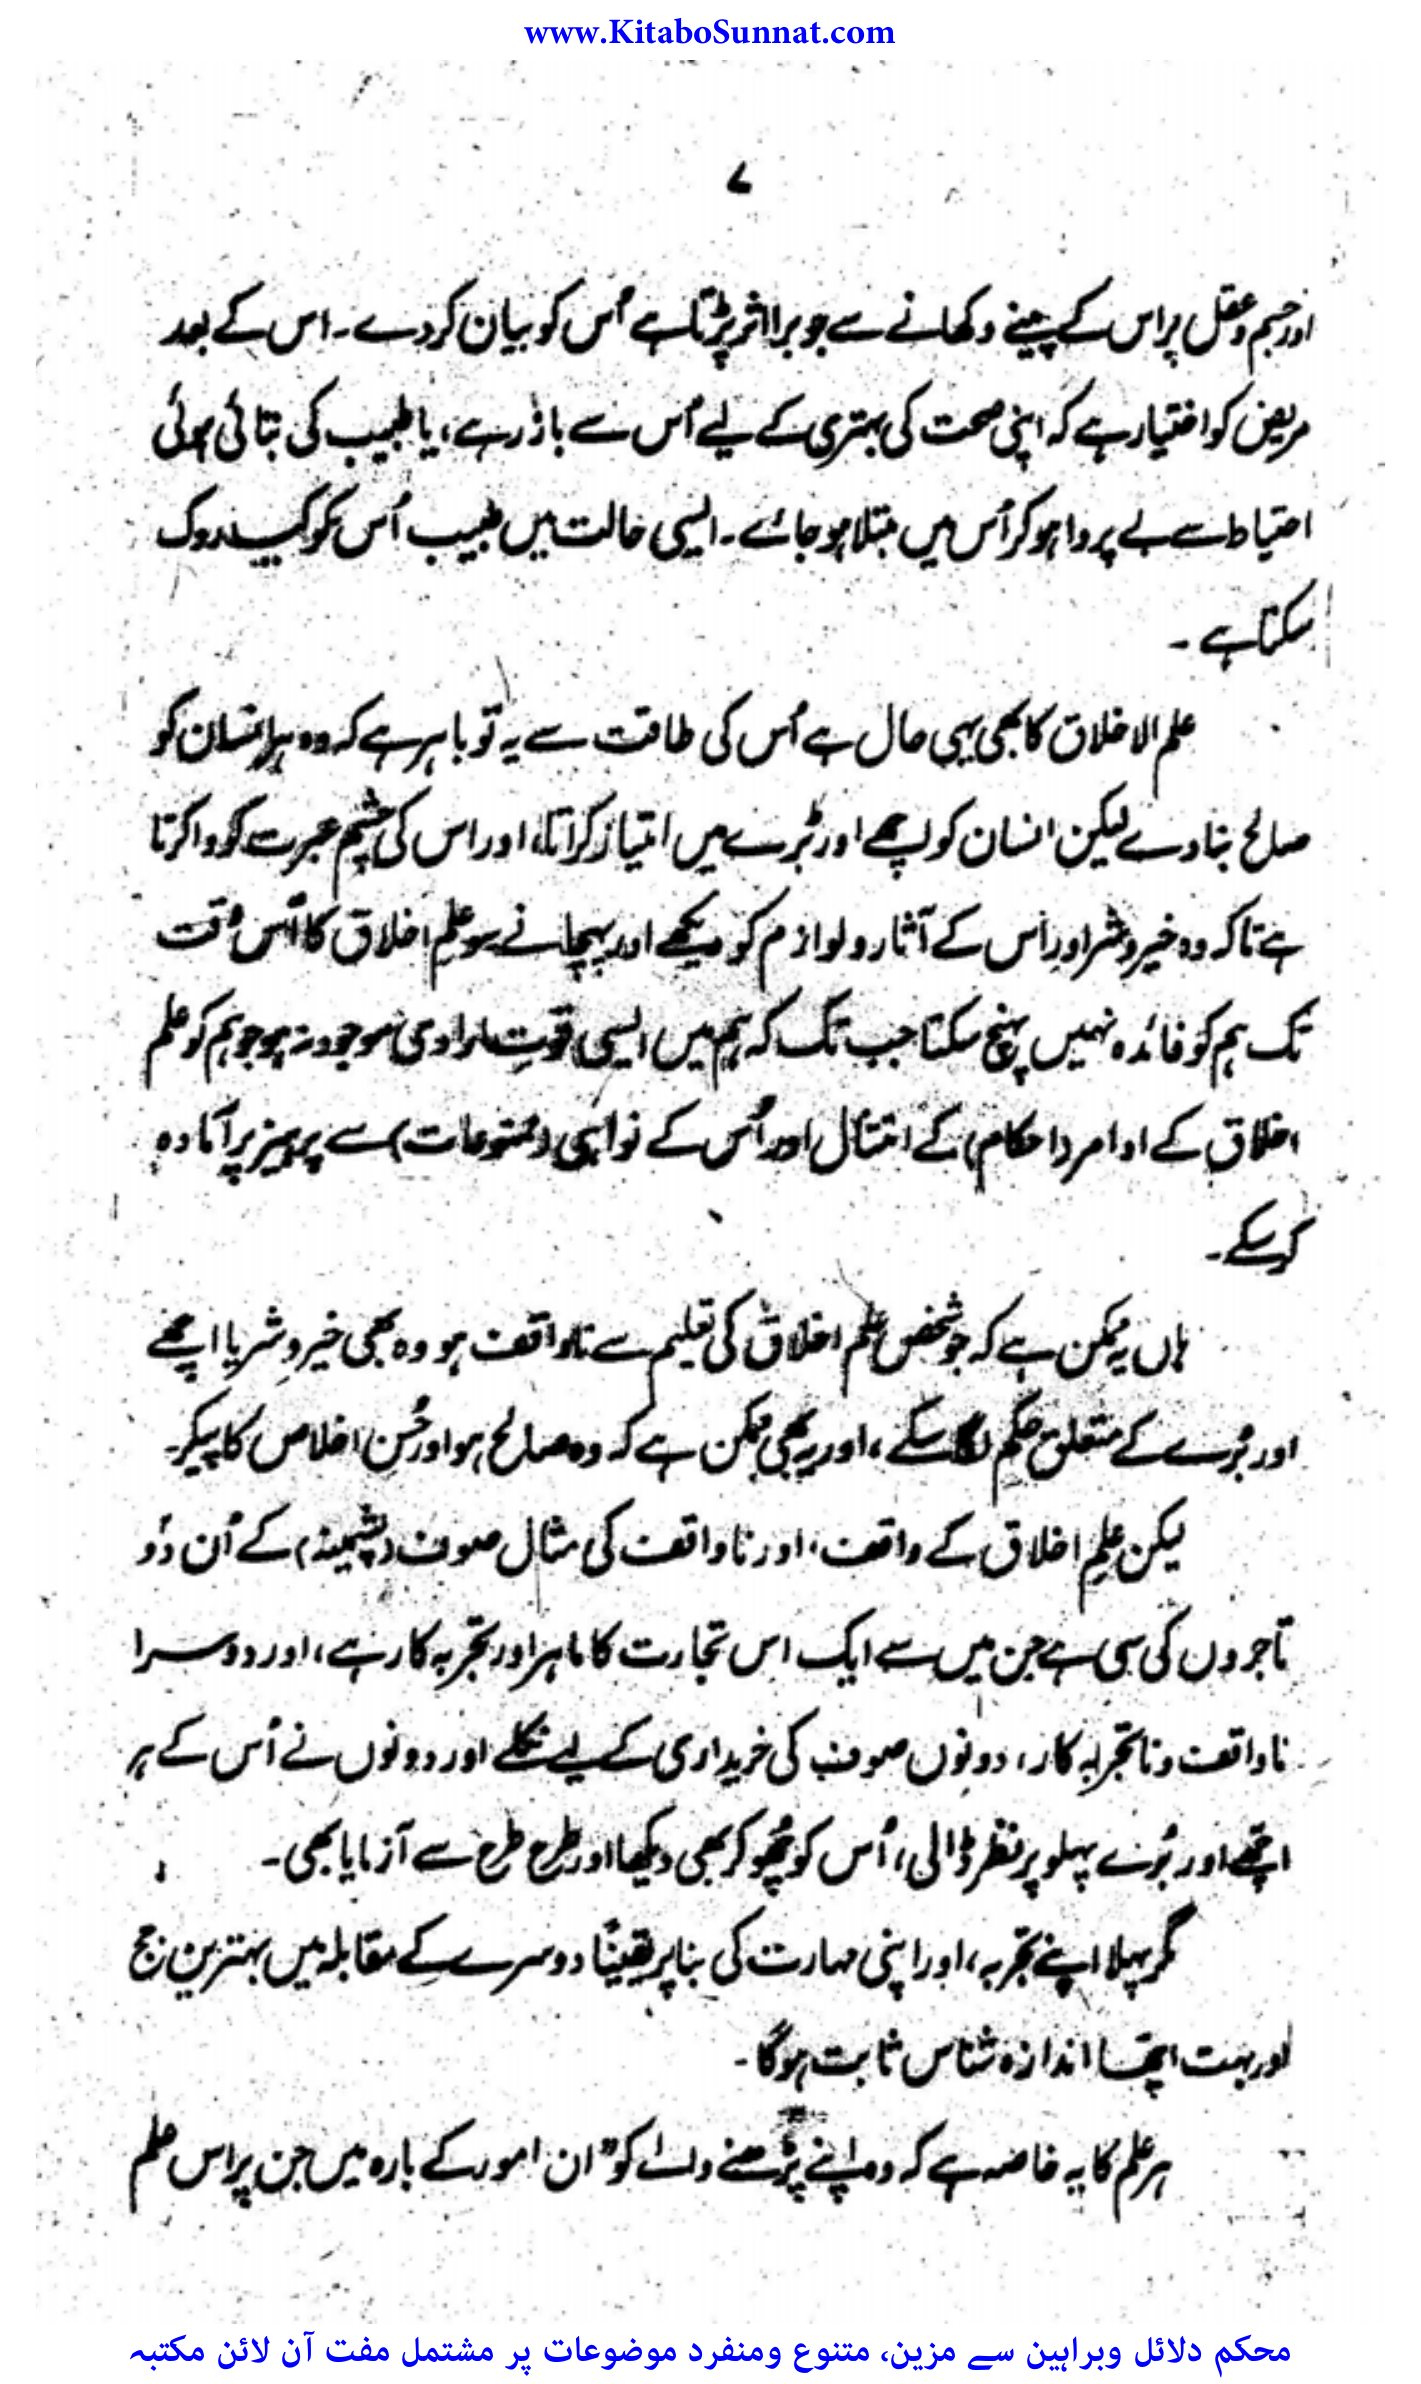 www.KitaboSunnat.com
۷
اور جسم و عقل پر اس کے پینے وکھانے سے جو برا اثر پڑتا ہے اُس کو بیان کر دے۔ اس کے بعد
مریض کو اختیار ہے کہ اپنی صحت کی بہتری کے لیے اُس سے باز رہے، یا طبیب کی بتائی ہوئی
احتیاط سے بے پروا ہو کر اُس میں مبتلا ہو جائے۔ ایسی حالت میں طبیب اُس کو کیسے روک
سکتا ہے۔
علم الاخلاق کا بھی یہی حال ہے اُس کی طاقت سے یہ تو باہر ہے کہ وہ ہر انسان کو
صالح بنا دے لیکن انسان کو اچھے اور بُرے میں امتیاز کراتا، اور اس کی چشمِ عبرت کو وا کرتا
ہے تاکہ وہ خیر و شر اور اس کے آثار و لوازم کو دیکھے اور پہچانے سو علمِ اخلاق کا اُس وقت
تک ہم کو فائدہ نہیں پہنچ سکتا جب تک کہ ہم میں ایسی قوتِ ارادی موجود نہ ہو جو ہم کو علم
اخلاق کے اوامر (احکام) کے امتثال اور اُس کے نواہی (ممنوعات) سے پرہیز پر آمادہ
کر سکے۔
ہاں یہ ممکن ہے کہ جو شخص علم اخلاق کی تعلیم سے ناواقف ہو وہ بھی خیر و شر یا اچھے
اور بُرے کے متعلق حکم لگا سکے، اور یہ بھی ممکن ہے کہ وہ صالح ہو اور حُسنِ اخلاص کا پیکر۔
لیکن علمِ اخلاق کے واقف، اور ناواقف کی مثال صوف (پشمینہ) کے اُن دو
تاجروں کی سی ہے جن میں سے ایک اس تجارت کا ماہر اور تجربہ کار ہے، اور دوسرا
ناواقف و ناتجربہ کار، دونوں صوف کی خریداری کے لیے نکلے اور دونوں نے اُس کے ہر
اچھے اور بُرے پہلو پر نظر ڈالی، اُس کو چھو کر بھی دیکھا اور طرح طرح سے آزمایا بھی۔
مگر پہلا اپنے تجربہ، اور اپنی مہارت کی بنا پر یقیناً دوسرے کے مقابلہ میں بہترین جج
اور بہت اچھا اندازہ شناس ثابت ہوگا۔
ہر علم کا یہ خاصہ ہے کہ وہ اپنے پڑھنے والے کو "ان امور کے بارہ میں جن پر اس علم
محکم دلائل وبراہین سے مزین، متنوع ومنفرد موضوعات پر مشتمل مفت آن لائن مکتبہ